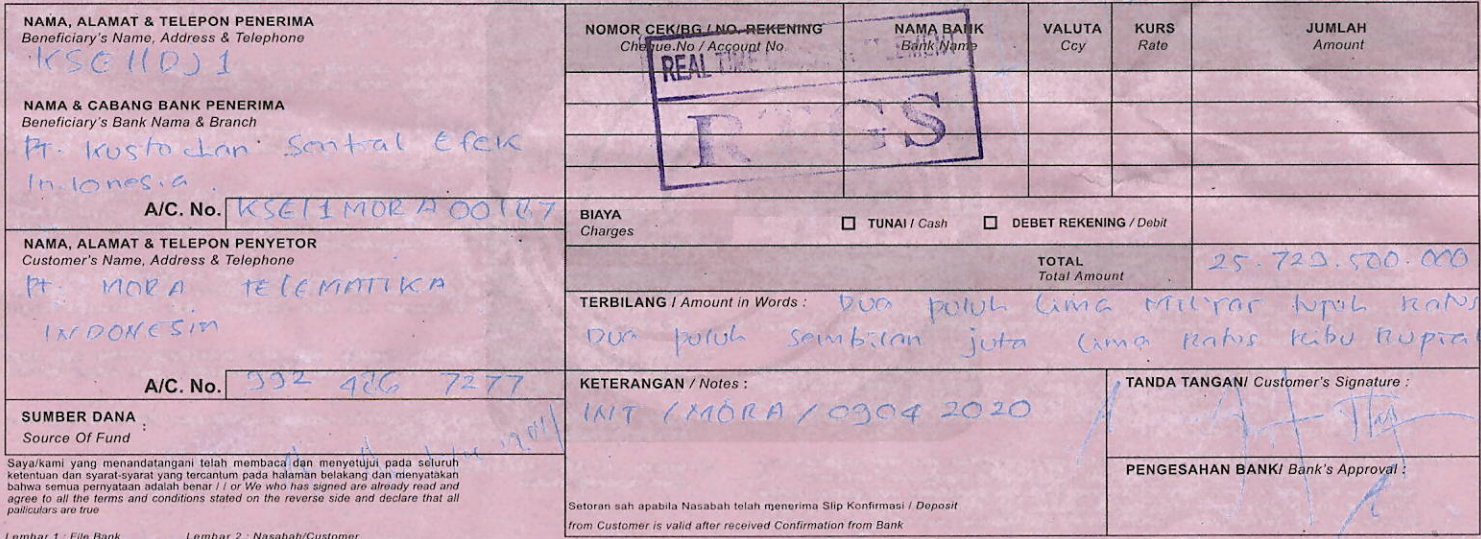 NAMA, ALAMAT & TELEPON PENERIMA
Beneficiary's Name, Address & Telephone
KSEI1DJ1
NAMA & CABANG BANK PENERIMA
Beneficiary's Bank Name & Branch
PT. Kustodian Sentral Efek
Indonesia.
A/C. No. KSEI1MORA00187
NAMA, ALAMAT & TELEPON PENYETOR
Customer's Name, Address & Telephone
PT. MORA TELEMATIKA
INDONESIA
A/C. No. 992 426 7277
SUMBER DANA :
Source Of Fund
Saya/kami yang menandatangani telah membaca dan menyetujui pada seluruh
ketentuan dan syarat-syarat yang tercantum pada halaman belakang dan menyatakan
bahwa semua pernyataan adalah benar / I or We who has signed are already read and
agree to all the terms and conditions stated on the reverse side and declare that all
pailiculars are true
Lembar 1 : File Bank Lembar 2 : Nasabah/Customer
NOMOR CEK/BG / NO. REKENING NAMA BANK VALUTA KURS JUMLAH
Cheque.No / Account No. Bank Name Ccy Rate Amount
REAL TIME SETTLEMENT
RTGS
BIAYA ☐ TUNAI / Cash ☐ DEBET REKENING / Debit
Charges
TOTAL 25.729.500.000
Total Amount
TERBILANG / Amount in Words : Dua puluh Lima Milyar tujuh Ratus
Dua puluh Sembilan juta Lima Ratus Ribu Rupiah
KETERANGAN / Notes :
INT / MORA / 0904 2020
Setoran sah apabila Nasabah telah menerima Slip Konfirmasi / Deposit
from Customer is valid after received Confirmation from Bank
TANDA TANGAN/ Customer's Signature :
PENGESAHAN BANK/ Bank's Approval :